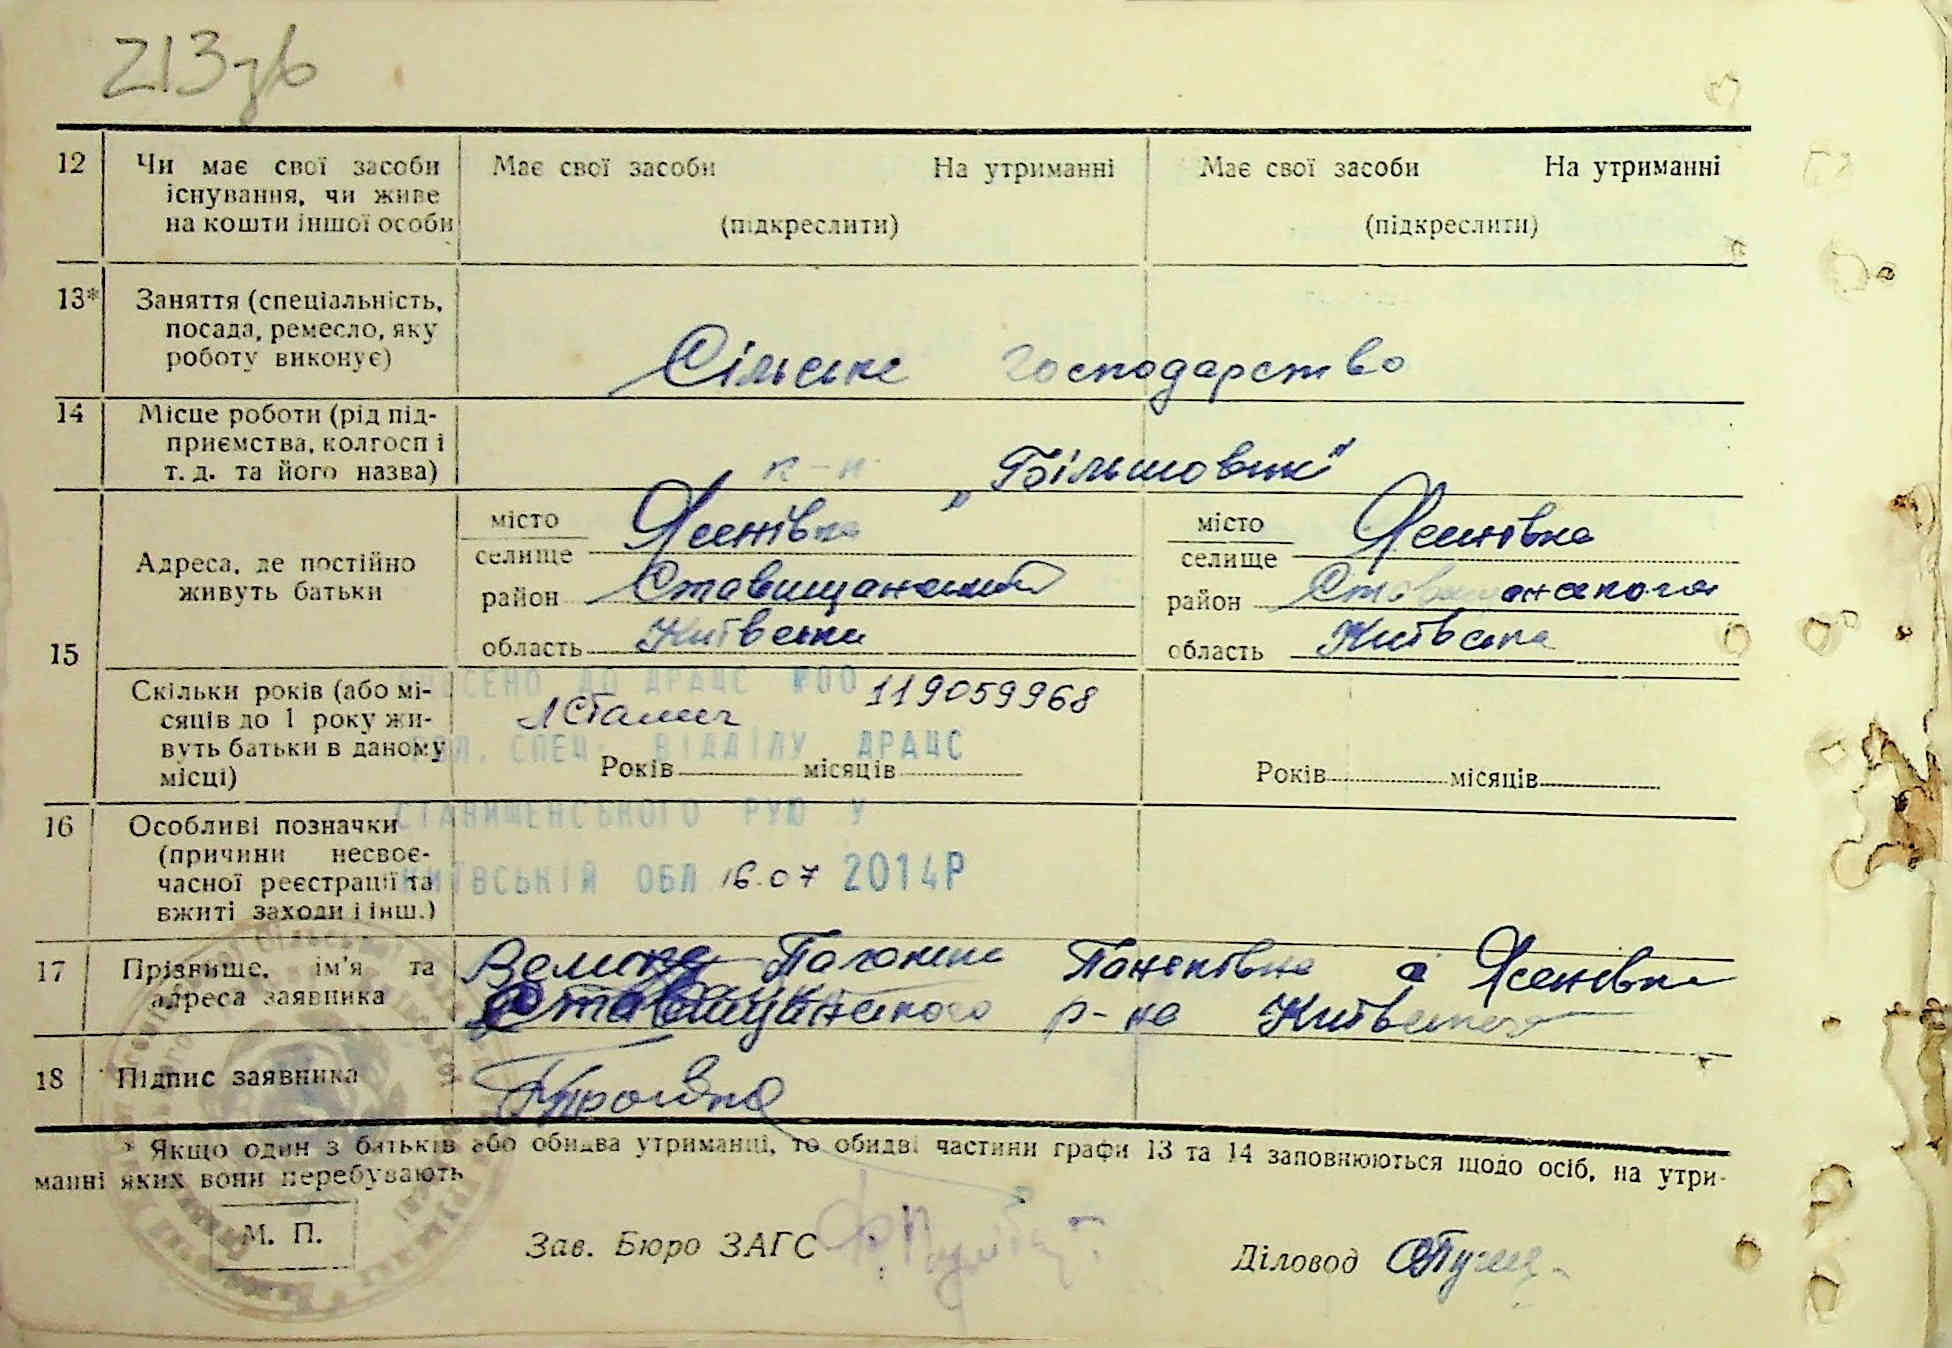 213зв
12 Чи має свої засоби існування, чи живе на кошти іншої особи
Має свої засоби На утриманні
(підкреслити)
Має свої засоби На утриманні
(підкреслити)
13* Заняття (спеціальність, посада, ремесло, яку роботу виконує)
Сільське господарство
14 Місце роботи (рід підприємства, колгосп і т. д. та його назва)
к-п „Більшовик"
15
Адреса, де постійно живуть батьки
місто
селище Ясенівка
район Ставищанський
область Київська
місто
селище Ясенівка
район Ставищанського
область Київська
Скільки років (або місяців до 1 року живуть батьки в даному місці)
ВНЕСЕНО ДО ДРАЦС №00 119059968
ГОЛ. СПЕЦ. ВІДДІЛУ ДРАЦС
Років місяців
Років місяців
СТАВИЩЕНСЬКОГО РУЮ У
КИЇВСЬКІЙ ОБЛ 16.07 2014Р
16 Особливі позначки (причини несвоєчасної реєстрації та вжиті заходи і інш.)
17 Прізвище, ім'я та адреса заявника
Ясенівка
Ставищанського р-на Київської
18 Підпис заявника
* Якщо один з батьків або обидва утриманці, то обидві частини графи 13 та 14 заповнюються щодо осіб, на утри-
манні яких вони перебувають
М. П.
Зав. Бюро ЗАГС
Діловод